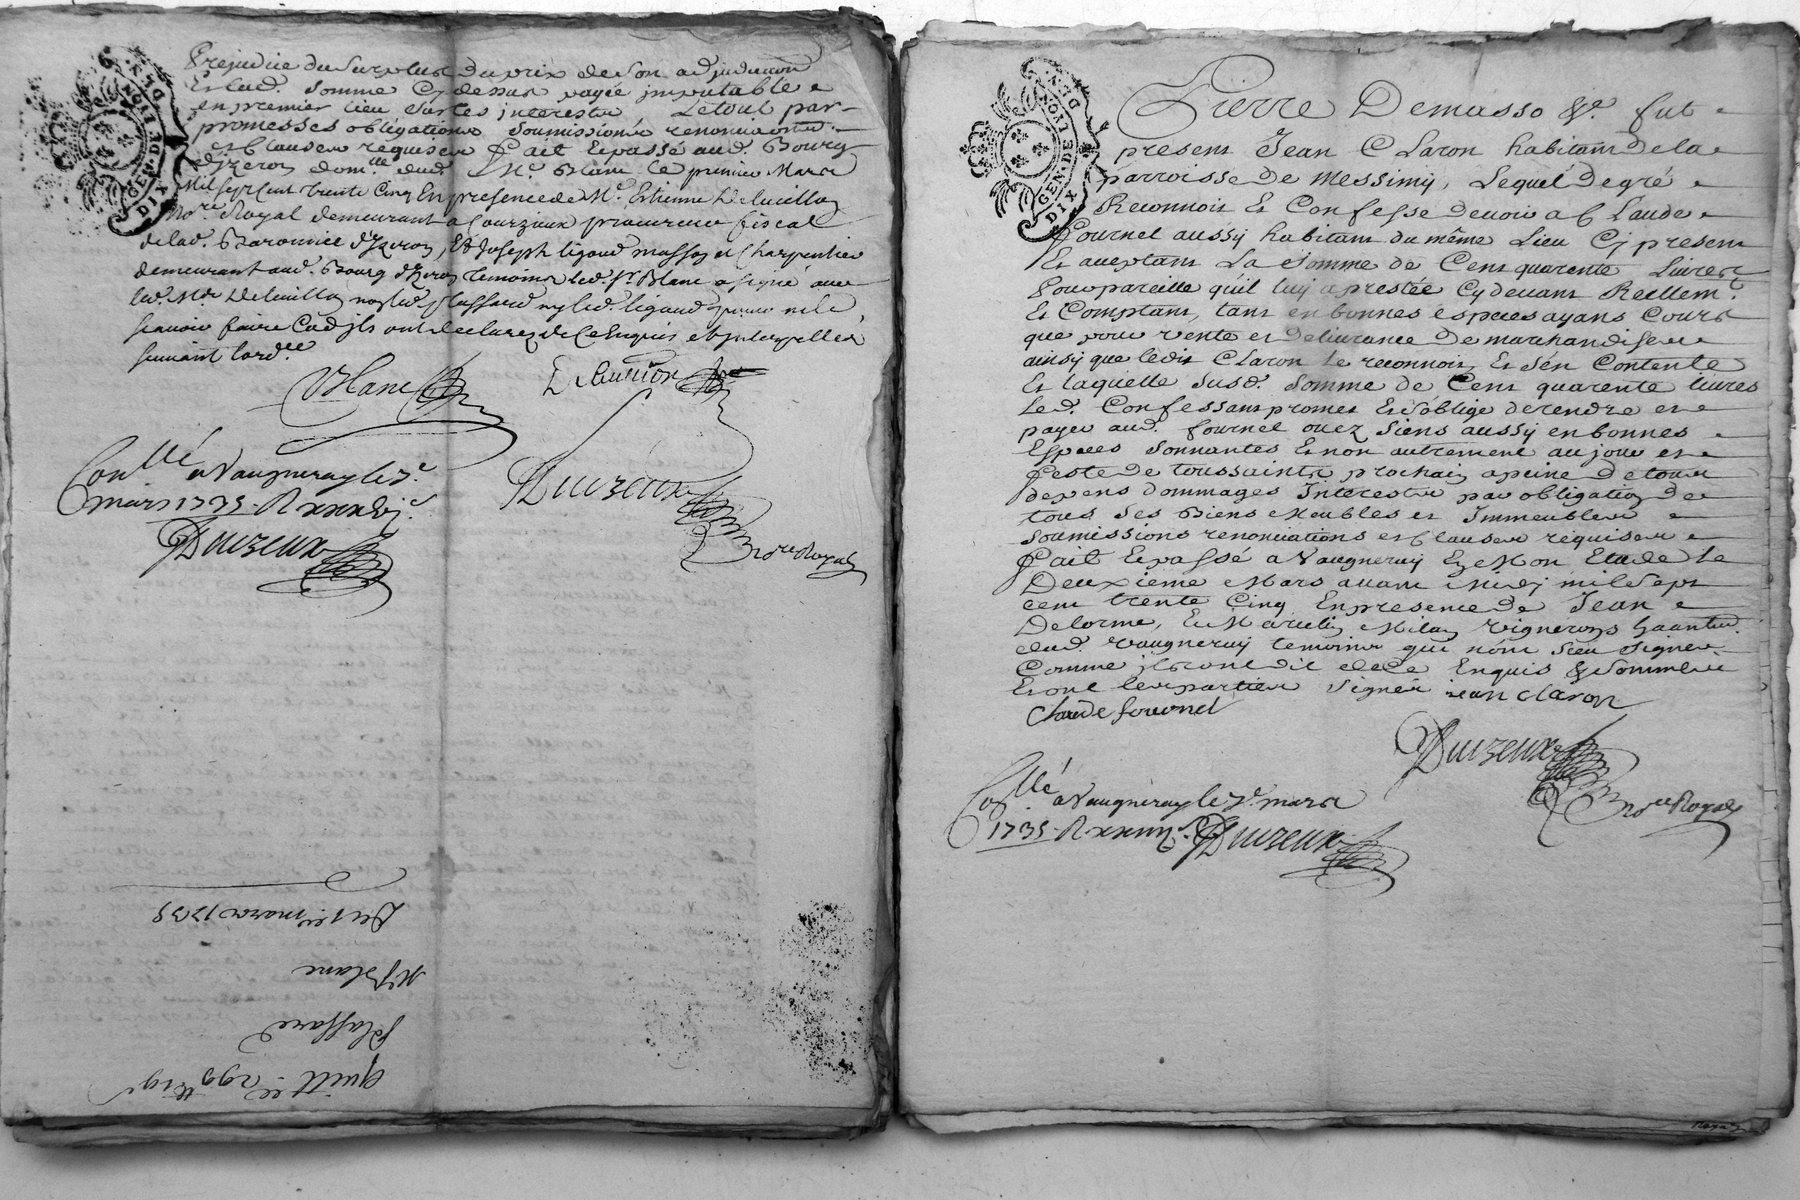 GEN. DE LYON
DIX DEN.
Prejudice du surplus du prix de son adjudication
Et lad. somme Cy dessus payée imputable
en premier lieu sur les interests Letout par
promesses obligations soumissions renonciations
et Clauses requises Fait Et passé aud. Bourg
d'Izeron dom.lle dud. Sr. Blanc le premier Mars
Mil sept Cent trente Cinq En presence de Me. Etienne Deluvillon
No.re Royal demeurant a Courzieux procureur fiscal
de lad. Baronnie d'Izeron, Et Joseph ligoud masson et Charpentier
demeurant aud. Bourg d'Izeron temoins led. Sr. Blanc a signé avec
led. Me
non led. Plassard ny led. ligoud pour ne le
scavoir faire Comme ils ont declarez de Ce Enquis et Interpellez
suivant lord.ce
Blanc
Duizeux
No.re Royal
Con.llé a Vaugneray le 7e
mars 1735. R
Duizeux
Du 1er mars 1735
Mr Blanc
Plassard
quitt.ce 299
GEN. DE LYON
DIX DEN.
Pierre Demasso &c. fut
present Jean Claron habitant de la
parroisse De Messimy, Lequel de gré
Reconnoit Et Confesse devoir a Claude
Fournel aussy habitant du même Lieu Cy present
Et aceptant La Somme de Cent quarente Livres
Pour pareille qu'il luy a prestée Cy devant Reellem.t
Et Comptant, tant en bonnes especes ayans Cours
que pour vente et delivrance De marchandises
ainsy que ledit Claron le reconnoit Et s'en Contente
Et laquelle susd. somme de Cent quarente livres
Led. Confessant promet Et s'oblige de rendre et
payer aud. fournel ou ez siens aussy en bonnes
Especes sonnantes Et non autrement au jour et
feste de toussaints prochain a peine de tous
depens dommages Interests par obligation de
tous ses Biens Meubles et Immeubles
soumissions renonciations et Clauses requises
Fait Et passé a Vaugneray En Mon Etude le
Deuxieme Mars avant Midy mil sept
cent trente Cinq En presence de Jean
Delorme, Et Marcelin Milan vignerons habitants
dud. Vaugneray temoins qui n'ont sceu signer
Comme ils ont dit de Ce Enquis & Sommés
Et ont les parties signés jean claron
Claude fournel
Duizeux
No.re Royal
Con.llé a Vaugneray le 7e mars
1735. R
Duizeux
Royal